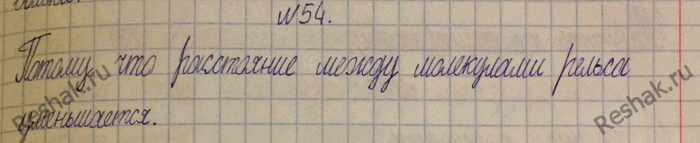 N54.
Потому что расстояние между молекулами рельса
уменьшается.
Reshak.ru
Reshak.ru